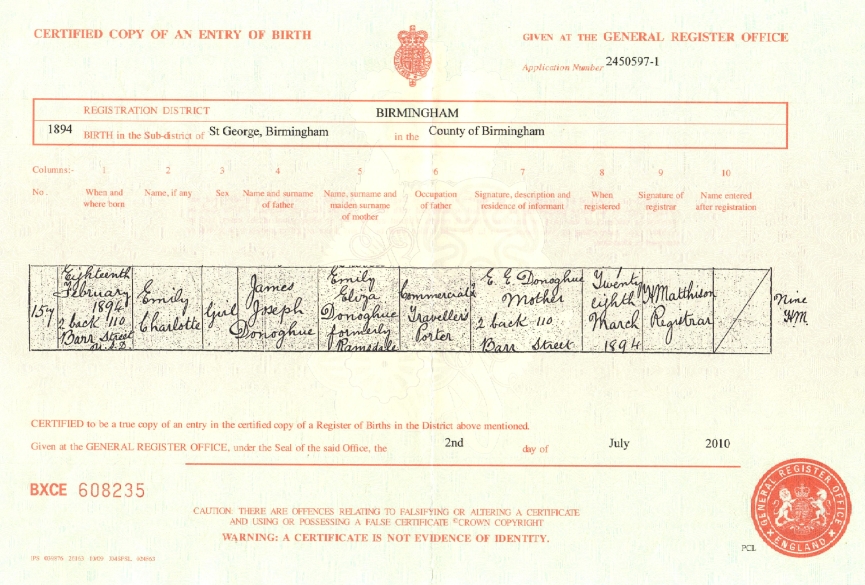 CERTIFIED COPY OF AN ENTRY OF BIRTH
GIVEN AT THE GENERAL REGISTER OFFICE
Application Number 2450597-1
REGISTRATION DISTRICT BIRMINGHAM
1894 BIRTH in the Sub-district of St George, Birmingham in the County of Birmingham
Columns:- 1 2 3 4 5 6 7 8 9 10
No. When and where born Name, if any Sex Name and surname of father Name, surname and maiden surname of mother Occupation of father Signature, description and residence of informant When registered Signature of registrar Name entered after registration
157
Eighteenth
February
1894
2 back 110
Barr Street
Emily
Charlotte
Girl
James
Joseph
Donoghue
Emily
Eliza
Donoghue
formerly
Ramsdale
Commercial
Traveller's
Porter
E. E. Donoghue
Mother
2 back 110
Barr Street
Twenty
eighth
March
1894
Matthison
Registrar
Nine
CERTIFIED to be a true copy of an entry in the certified copy of a Register of Births in the District above mentioned.
Given at the GENERAL REGISTER OFFICE, under the Seal of the said Office, the 2nd day of July 2010
BXCE 608235
CAUTION: THERE ARE OFFENCES RELATING TO FALSIFYING OR ALTERING A CERTIFICATE
AND USING OR POSSESSING A FALSE CERTIFICATE ©CROWN COPYRIGHT
WARNING: A CERTIFICATE IS NOT EVIDENCE OF IDENTITY.
GENERAL REGISTER OFFICE
ENGLAND